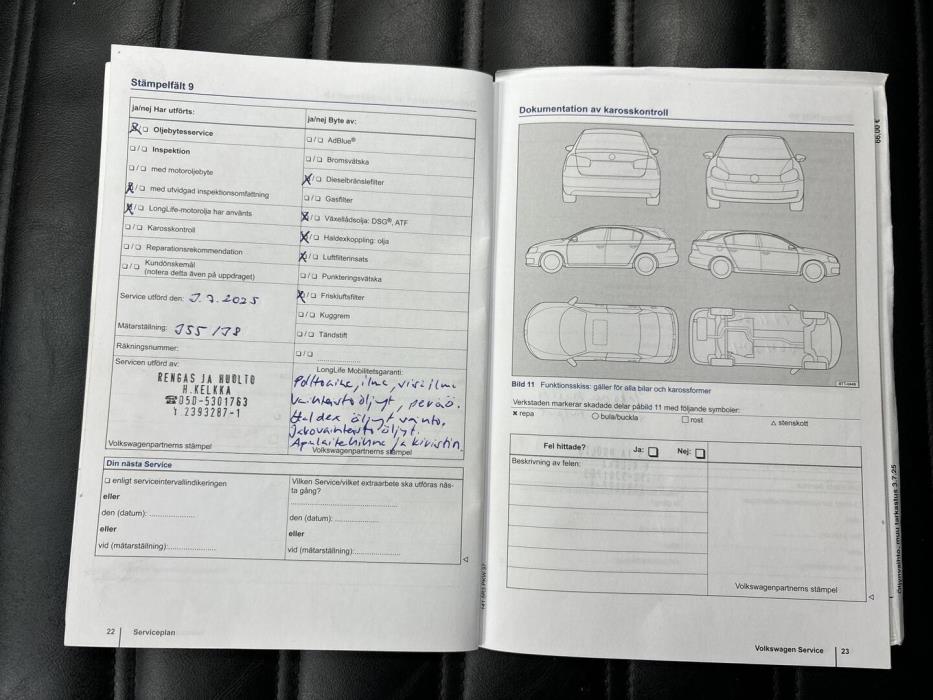 Stämpelfält 9
ja/nej Har utförts:
☒/☐ Oljebytesservice
☐/☐ Inspektion
☐/☐ med motoroljebyte
☒/☐ med utvidgad inspektionsomfattning
☒/☐ LongLife-motorolja har använts
☐/☐ Karosskontroll
☐/☐ Reparationsrekommendation
☐/☐ Kundönskemål
(notera detta även på uppdraget)
Service utförd den: 3.7.2025
Mätarställning: 155178
Räkningsnummer:
Servicen utförd av:
RENGAS JA HUOLTO
H.KELKKA
☎050-5301763
Y 2393287-1
Volkswagenpartnerns stämpel
ja/nej Byte av:
☐/☐ AdBlue®
☐/☐ Bromsvätska
☒/☐ Dieselbränslefilter
☐/☐ Gasfilter
☒/☐ Växellådsolja: DSG®, ATF
☒/☐ Haldexkoppling: olja
☒/☐ Luftfilterinsats
☐/☐ Punkteringsvätska
☒/☐ Friskluftsfilter
☐/☐ Kuggrem
☐/☐ Tändstift
☐/☐
LongLife Mobilitetsgaranti:
Polttoaine, ilma, viri ilma
Vaihteistoöljyt, perä ö.
Haldex öljyt vaihto.
Jakovaihteisto öljyt.
Apulaitehihna ja kiristin
Volkswagenpartnerns stämpel
Din nästa Service
☐ enligt serviceintervallindikeringen
eller
den (datum):
eller
vid (mätarställning):
Vilken Service/vilket extraarbete ska utföras näs-
ta gång?
den (datum):
eller
vid (mätarställning):
◁
141.5R3.PKW.97
22 Serviceplan
Dokumentation av karosskontroll
B7T-0448
Bild 11 Funktionsskiss: gäller för alla bilar och karossformer
Verkstaden markerar skadade delar på bild 11 med följande symboler:
× repa ○ bula/buckla □ rost △ stenskott
Fel hittade? Ja: ☐ Nej: ☐
Beskrivning av felen:
Volkswagenpartnerns stämpel
◁
Volkswagen Service 23
66,00 €
Öljynvaihto, muu tarkastus 3.7.25